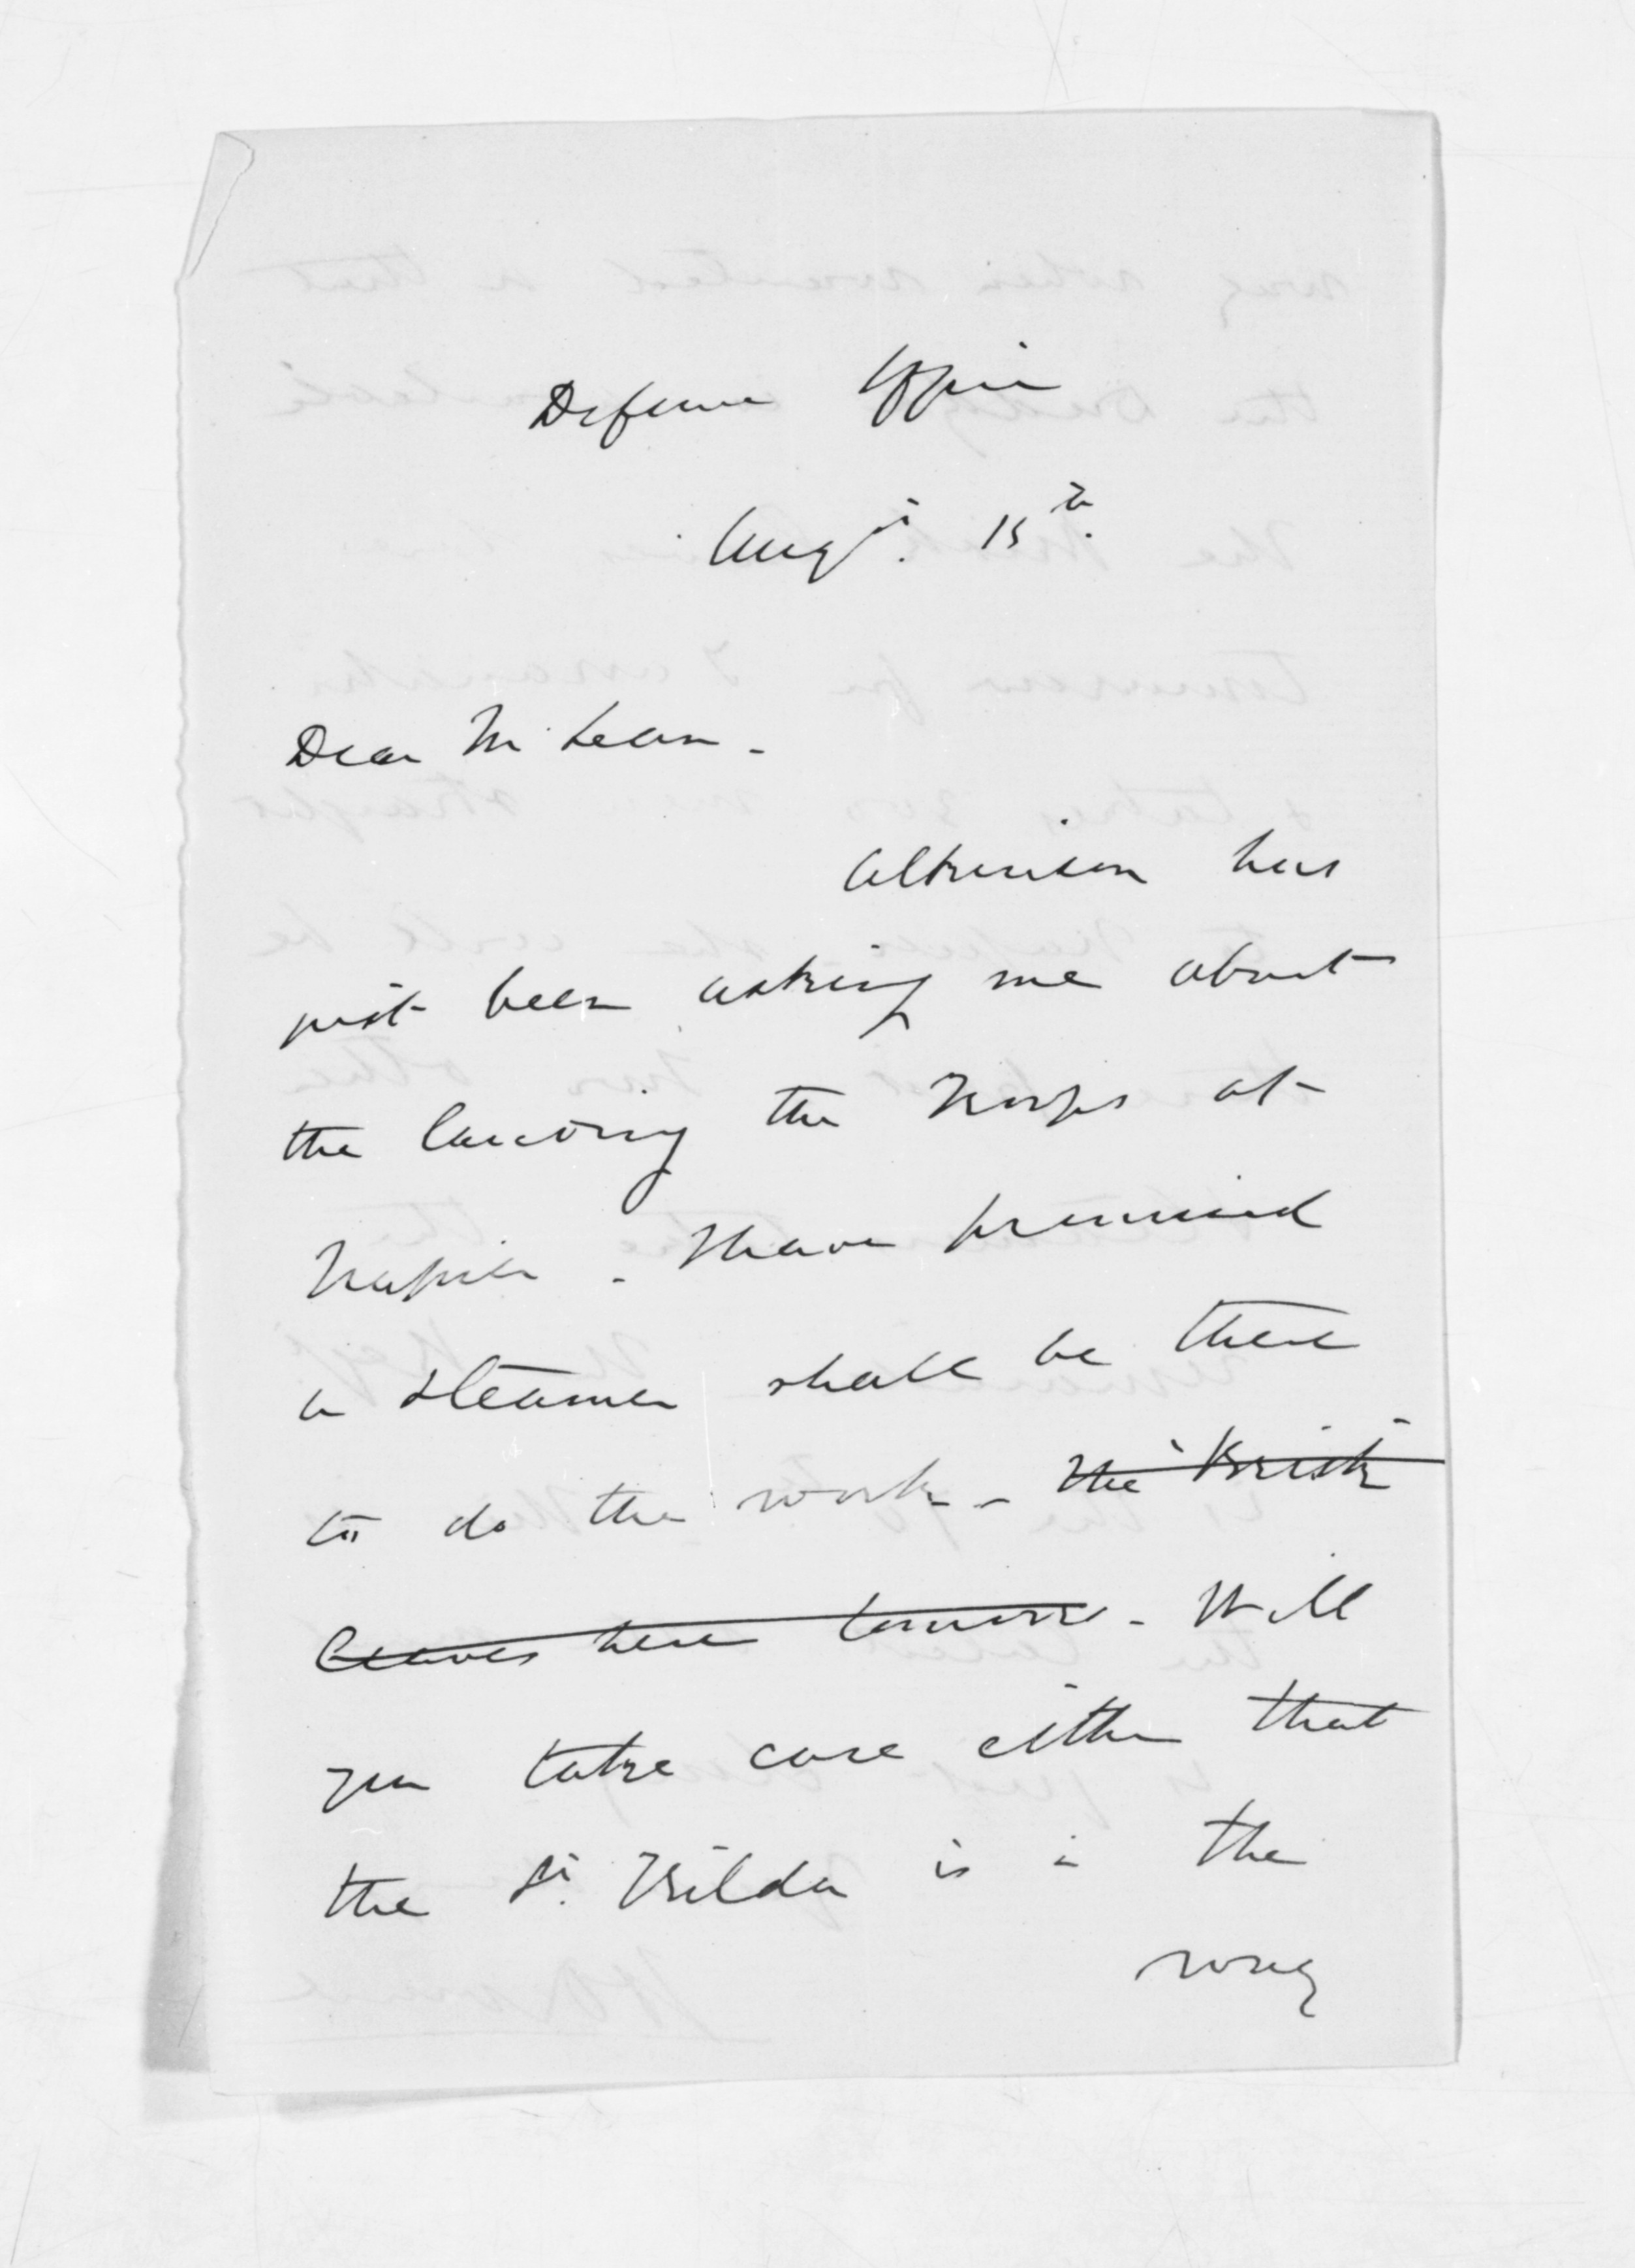 Defence Office
Augst. 15th.
Dear McLean -
Atkinson has
just been asking me about
the landing the troops at
Napier - I have promised
a steamer shall be there
to do the work - the "Brisk"
leaves here tomorro - Will
you take care either that
the St. Kilda is in the
way